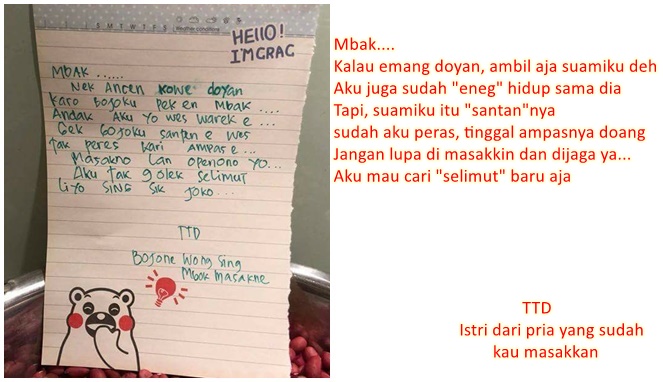 HEllO!
I'M GRAC
S M T W T F S
Weather conditions
MBAK ......
Nek Ancen kowe doyan
karo bojoku Pek en Mbak ....
Andak Aku Yo wes warek e ...
Gek Bojoku santen e wes
tak peres kari Ampas e ...
Masakno lan openono yo...
Aku tak golek selimut
liyo sing sik joko...
TTD
Bojone wong sing
Mbok Masakne
Mbak....
Kalau emang doyan, ambil aja suamiku deh
Aku juga sudah "eneg" hidup sama dia
Tapi, suamiku itu "santan"nya
sudah aku peras, tinggal ampasnya doang
Jangan lupa di masakkin dan dijaga ya...
Aku mau cari "selimut" baru aja
TTD
Istri dari pria yang sudah
kau masakkan